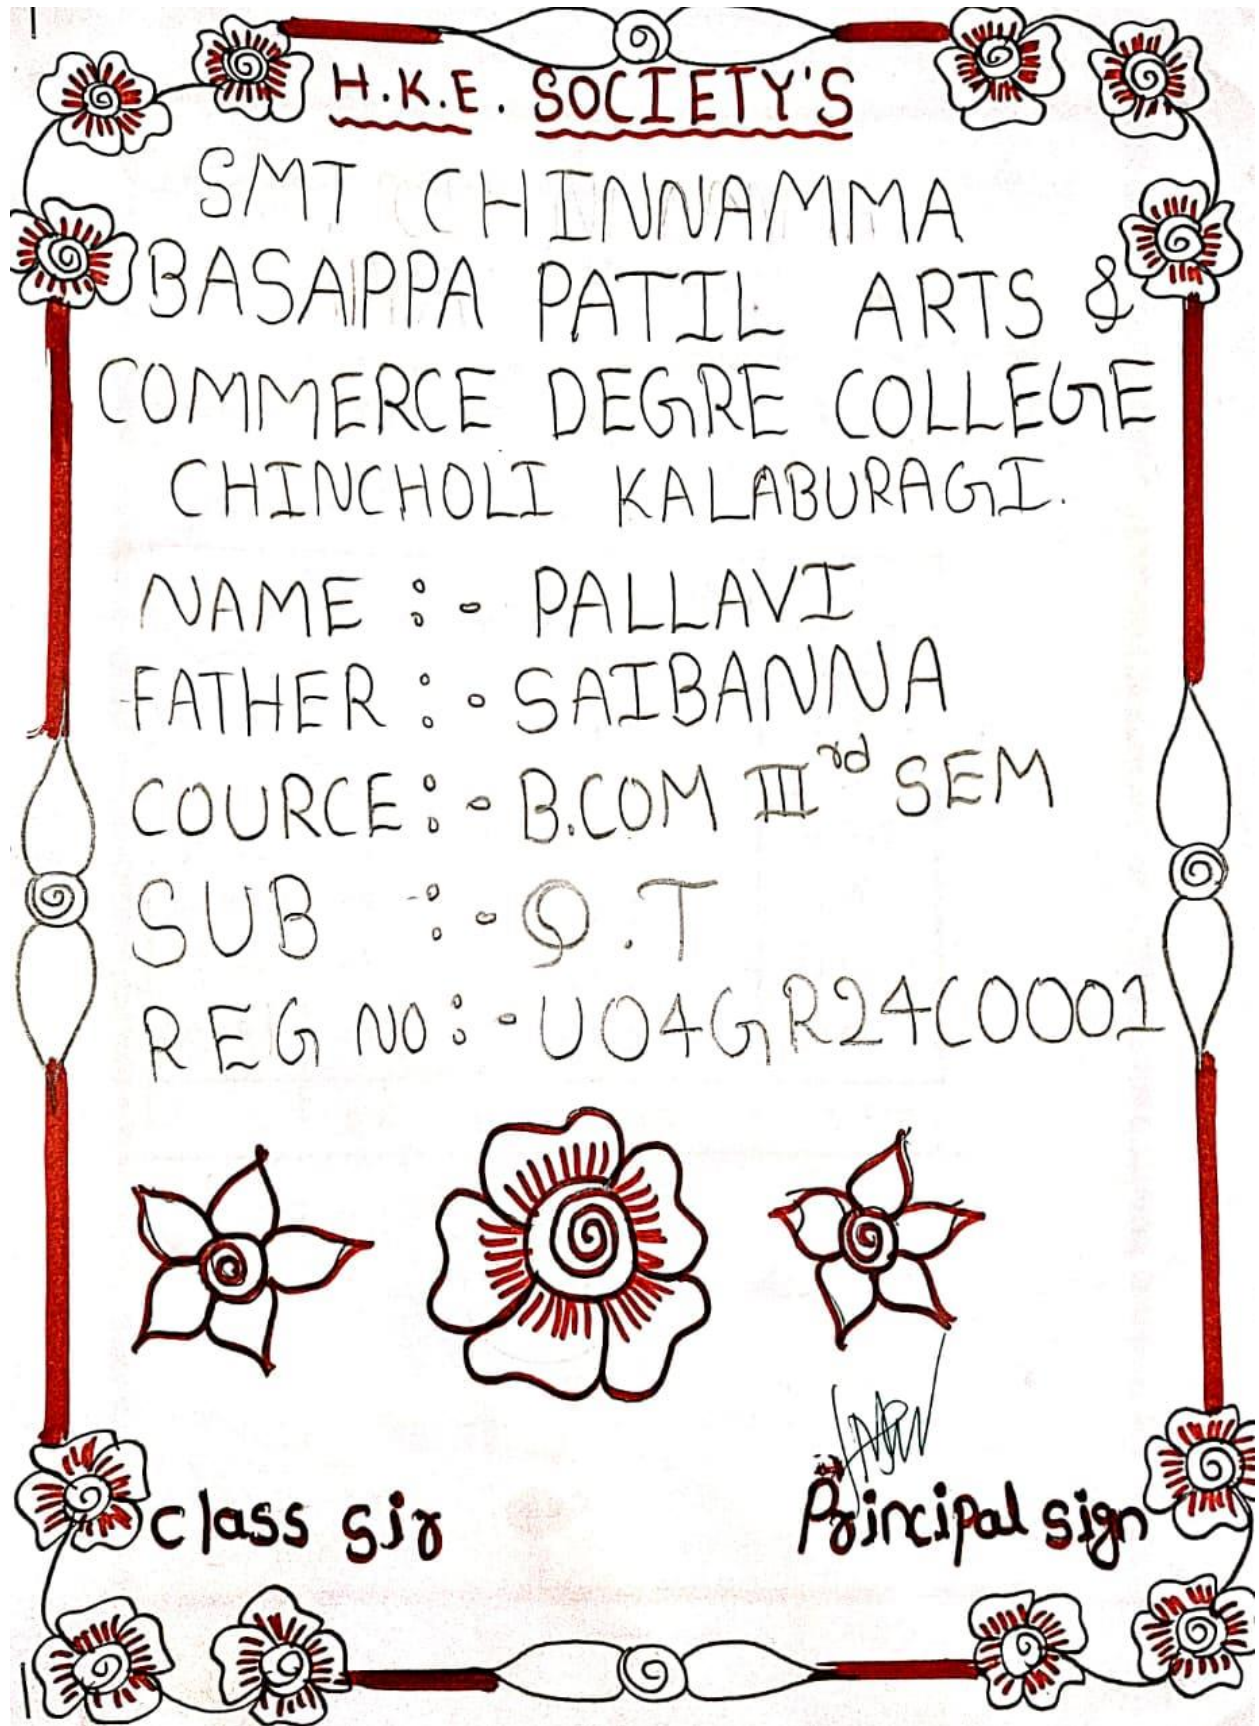 H.K.E. SOCIETY'S
SMT CHINNAMMA
BASAPPA PATIL ARTS &
COMMERCE DEGRE COLLEGE
CHINCHOLI KALABURAGI.
NAME :- PALLAVI
FATHER :- SAIBANNA
COURCE :- B.COM III rd SEM
SUB :- Q.T
REG NO :- U04GR24C0001
class sir
Principal sign